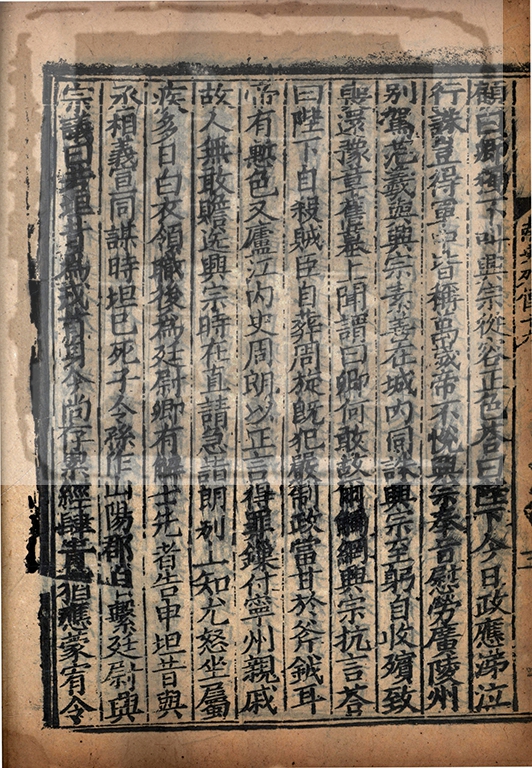 顧曰卿獨不叫興宗從容正色荅曰陛下今日政應涕泣
行誅豈得軍中皆稱萬歲帝不悅興宗奉旨慰勞廣陵州
別駕范義與興宗素善在城內同誅興宗至躬自收殯致
喪還豫章舊墓上聞謂曰卿何敢故爾觸網興宗抗言荅
曰陛下自殺賊臣自葬周旋旣犯嚴制政當甘於斧鉞耳
帝有慙色又廬江內史周朗以正言得罪鏁付寧州親戚
故人無敢瞻送興宗時在直請急詣朗別上知尤怒坐屬
疾多日白衣領職後爲廷尉卿有解士先者告申坦昔與
丞相義宣同謀時坦已死子令孫作山陽郡自繫廷尉興
宗議曰若坦昔爲戎首身今尚存累經肆眚猶應蒙宥令